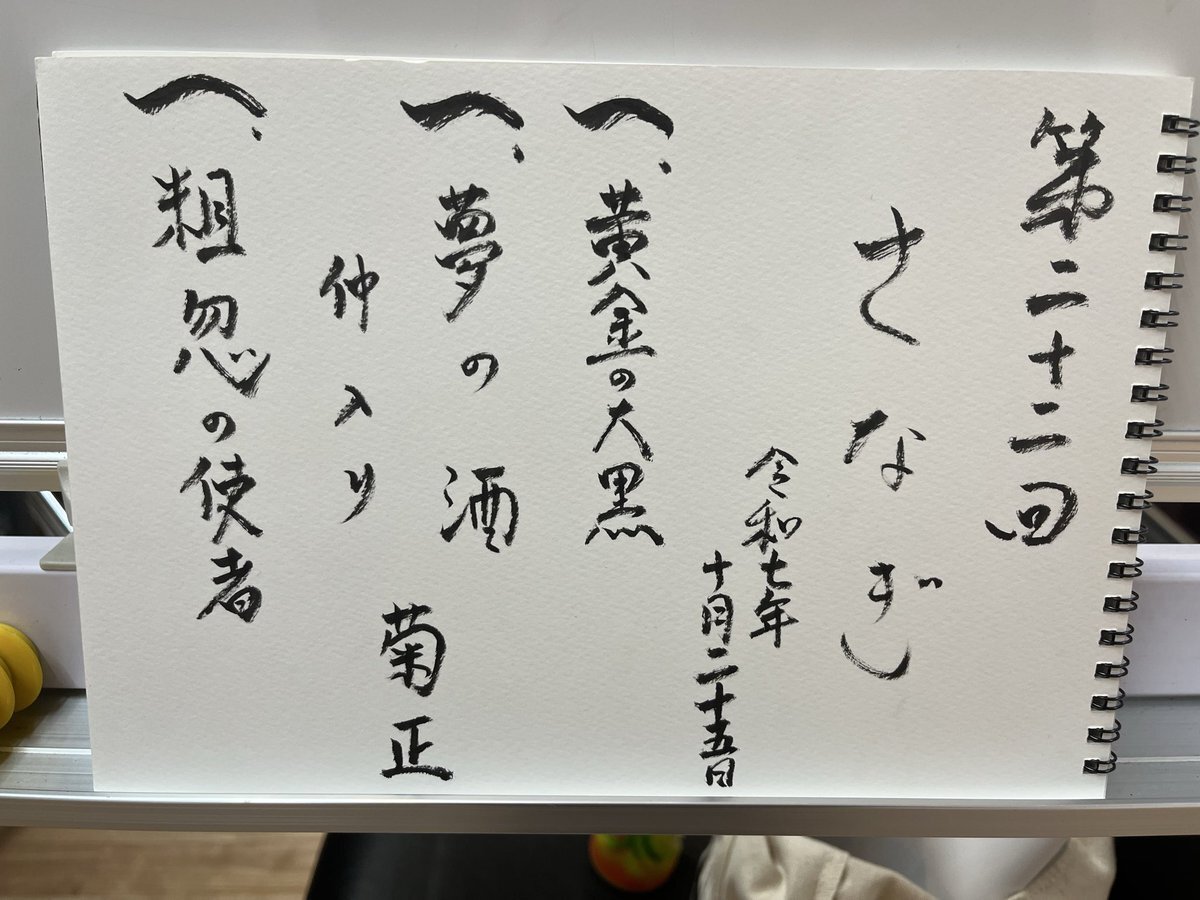 第二十二回
さなぎ
令和七年
十月二十五日
一、黄金の大黒
一、夢の酒
菊正
仲入り
一、粗忽の使者